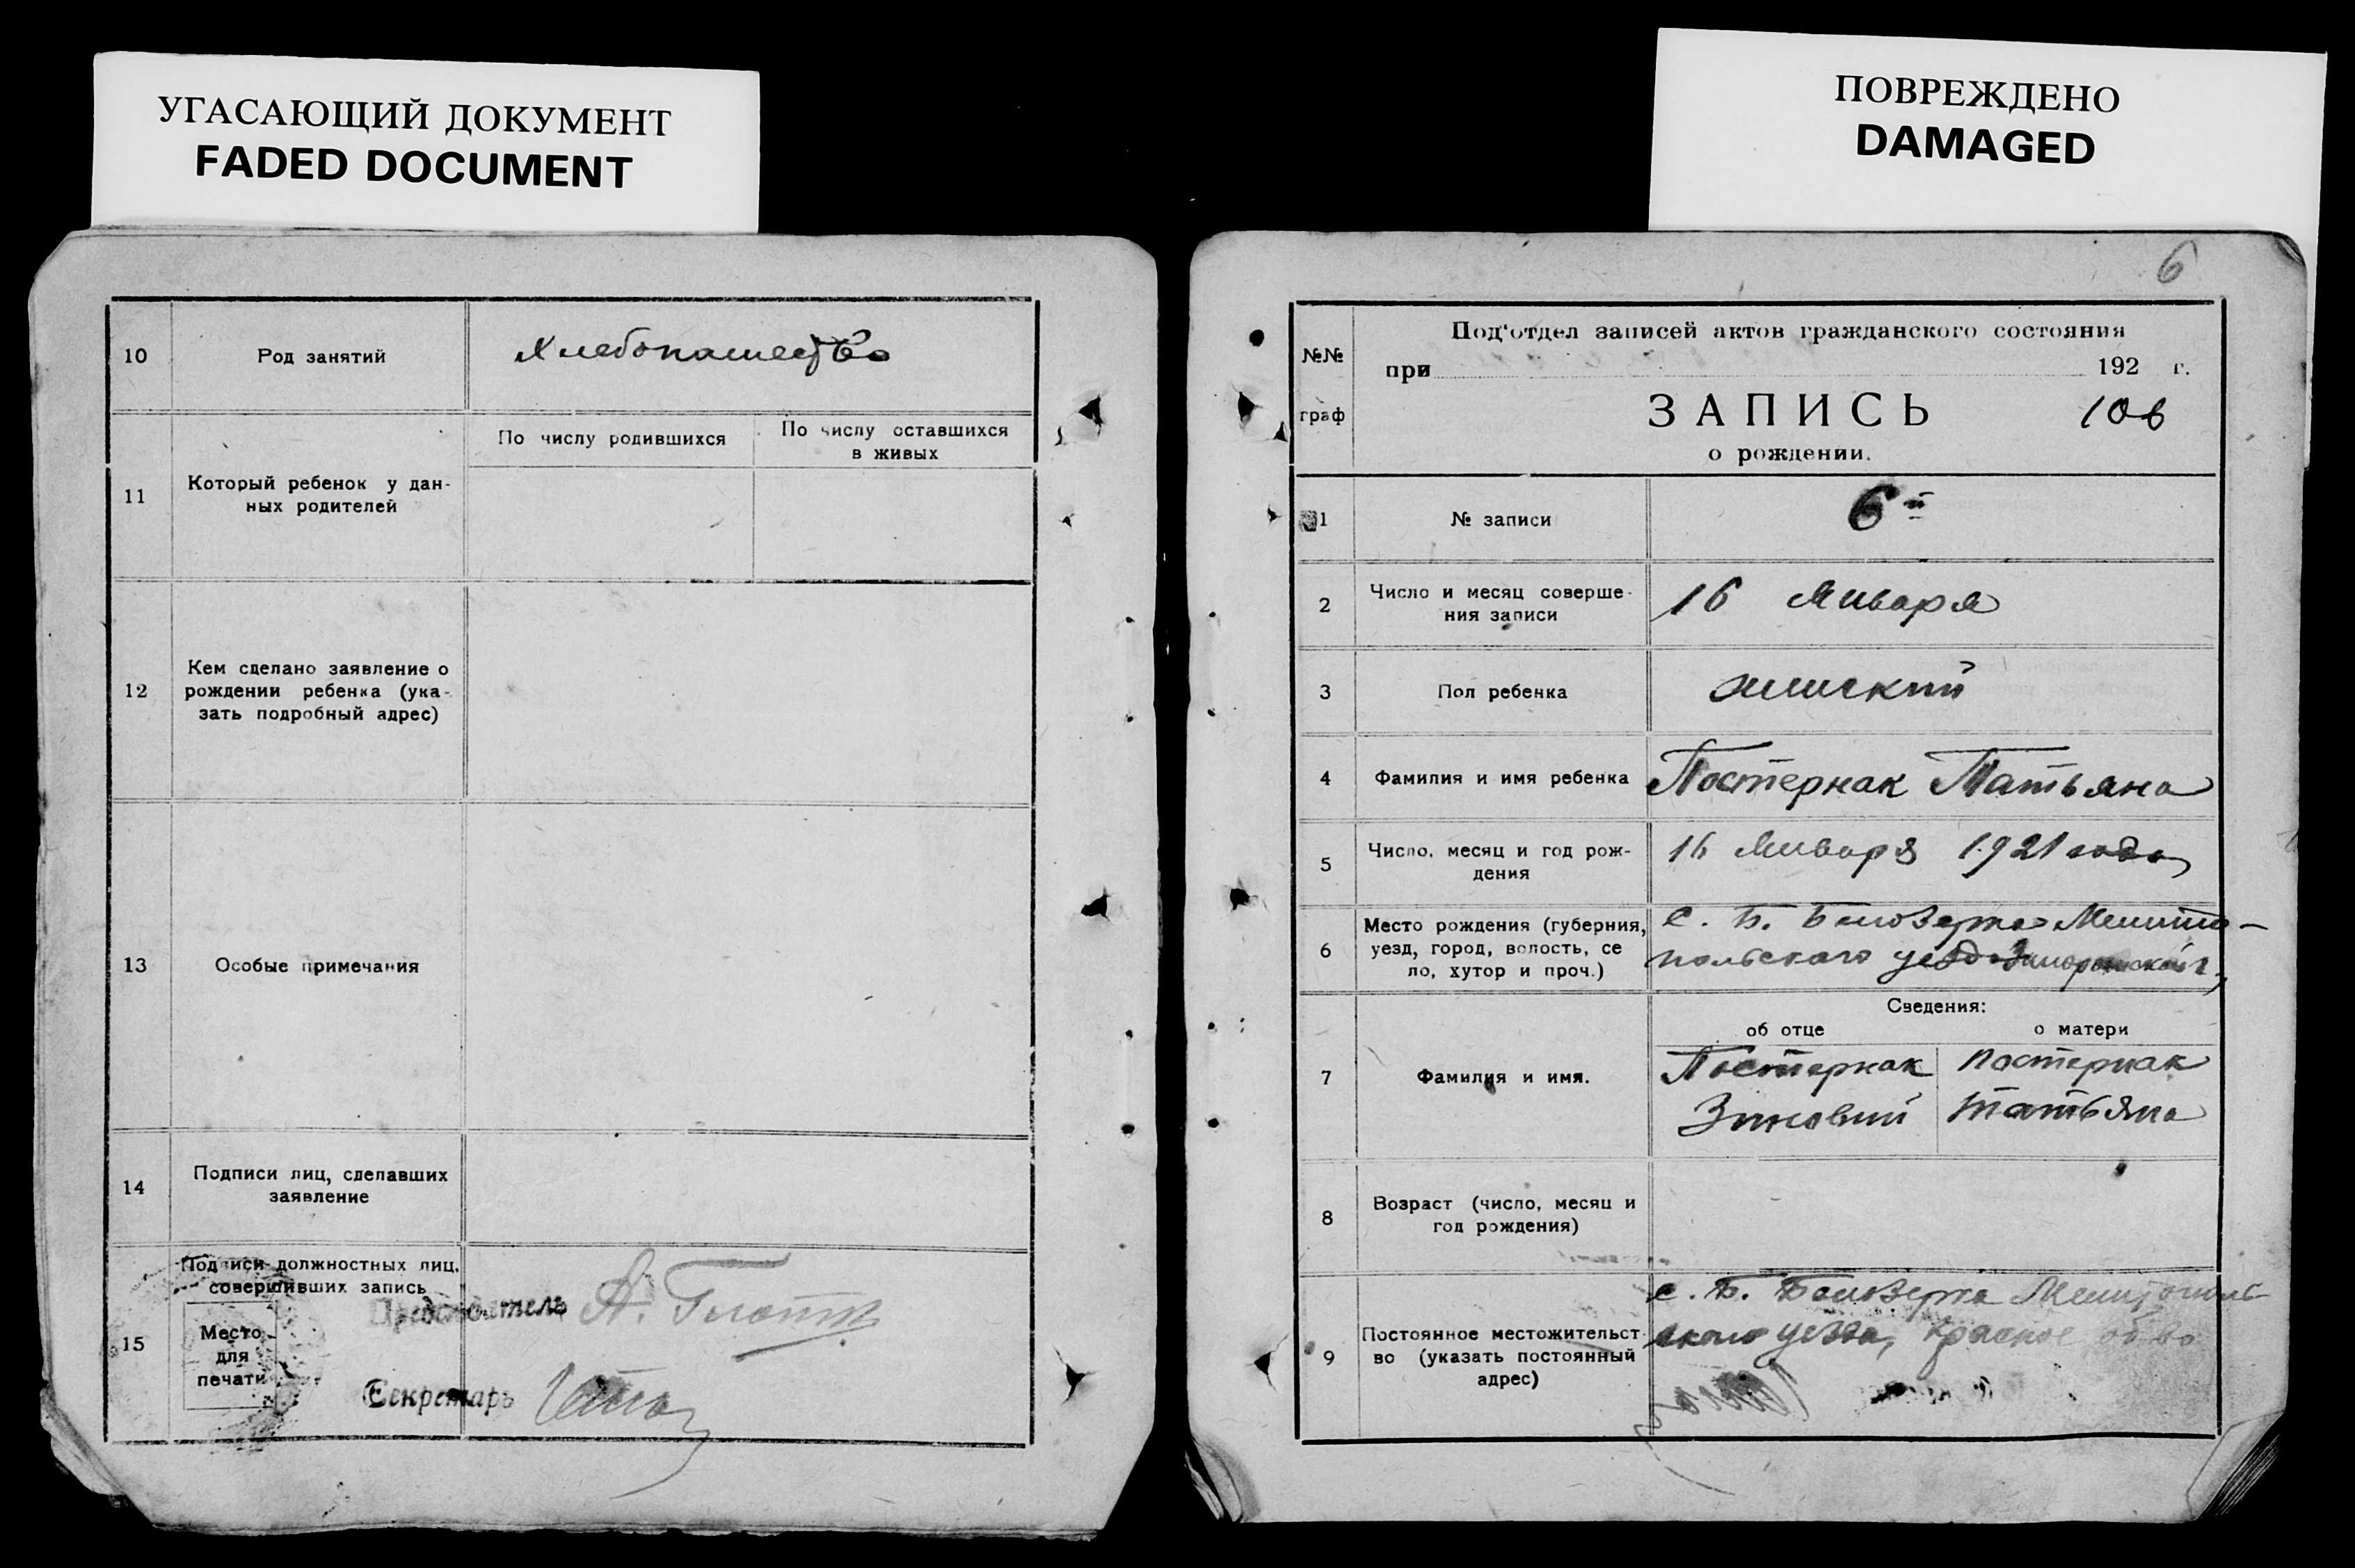 УГАСАЮЩИЙ ДОКУМЕНТ
FADED DOCUMENT
ПОВРЕЖДЕНО
DAMAGED
10
Род занятий
Хлебопашество
11
Который ребенок у дан-
ных родителей
По числу родившихся
По числу оставшихся
в живых
12
Кем сделано заявление о
рождении ребенка (ука-
зать подробный адрес)
13
Особые примечания
14
Подписи лиц, сделавших
заявление
15
Подписи должностных лиц,
совершивших запись
Место
для
печати
Председатель А.
Секретарь
6
№№
граф
Под'отдел записей актов гражданского состояния
при 192 г.
ЗАПИСЬ
106
о рождении.
1
№ записи
6й
2
Число и месяц соверше-
ния записи
16 Января
3
Пол ребенка
женский
4
Фамилия и имя ребенка
Постернак Татьяна
5
Число, месяц и год рож-
дения
16 Января 1921 года
6
Место рождения (губерния,
уезд, город, волость, се
ло, хутор и проч.)
с. Б. Белозерка Мелито-
польского уезда Запорожской г.
Сведения:
об отце
о матери
7
Фамилия и имя.
Постернак
Зиновий
Постернак
Татьяна
8
Возраст (число, месяц и
год рождения)
9
Постоянное местожительст-
во (указать постоянный
адрес)
с. Б. Белозерка Мелитополь
ского уезда, Красное об-во